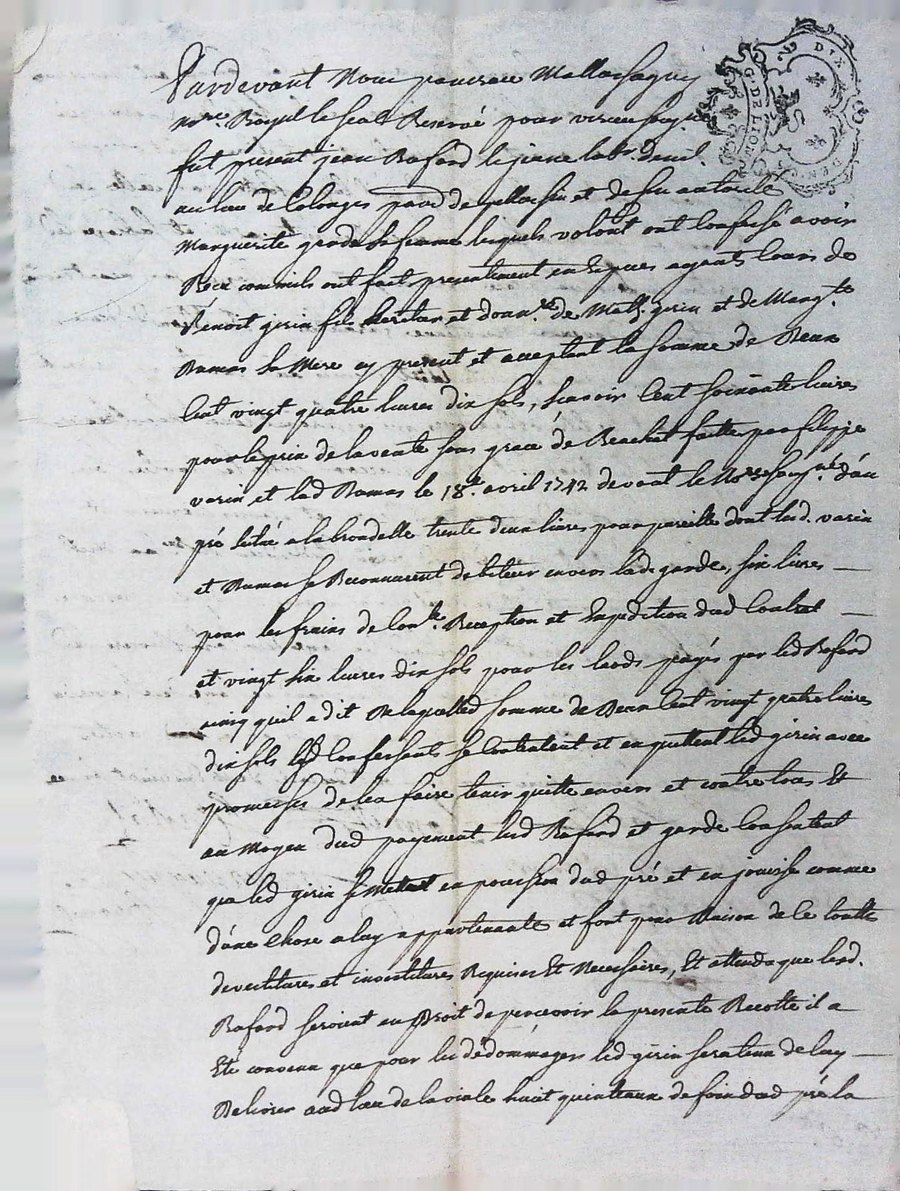 Pardevant Nous
no.re Royal le seal Reservé pour
fut present jean Bafard le jeune lab.r
au lieu de Colonges et de son autorité
Marguerite garde sa femme lesquels volont.t ont confessé avoir
Receu comm'ils ont fait presentement en Especes ayants cours de
Benoit girin fils heritier et donn.re de Math. girin et de Marg.te
Bamas sa Mere cy present et acceptant la somme de Deux
Cent vingt quatre livres dix sols, Scavoir Cent soixante livres
pour le prix de la vente sous grace de Reachat faitte par filippe
varin et lad Bamas le 18.e avril 1742 devant le No.re soussigné d'un
pré situé a la brondelle trente deux livres pour pareille dont lesd. varin
et Bamas se Reconnurent debiteur envers lad. garde, six livres
pour les frais de Reception et Expedition dud Contrat
et vingt six livres dix sols pour les laods payés par led Bafard
ainsy qu'il a dit De laquelle somme de Deux Cent vingt quatre livres
dix sols lesd Confessants se Contentent et en quittent led girin avec
promesses de l'en faire tenir quitte envers et contre tous Et
au Moyen dud payement lesd Bafard et garde Consentent
que led girin se Mette en possession dud pré et en jouisse comme
d'une Chose a luy appartenante et font pour Raison de ce toutte
devetitures et investitures Requises Et Necessaires, Et attendu que lesd.
Bafard seroient en Droit de percevoir la presente Recolte il a
Eté convenu que pour les dédommager led girin sera tenu de luy
Delivrer aud lieu de la viale huit quinteaux de foin dud pré la
G. DE LION
DIX
DEN.